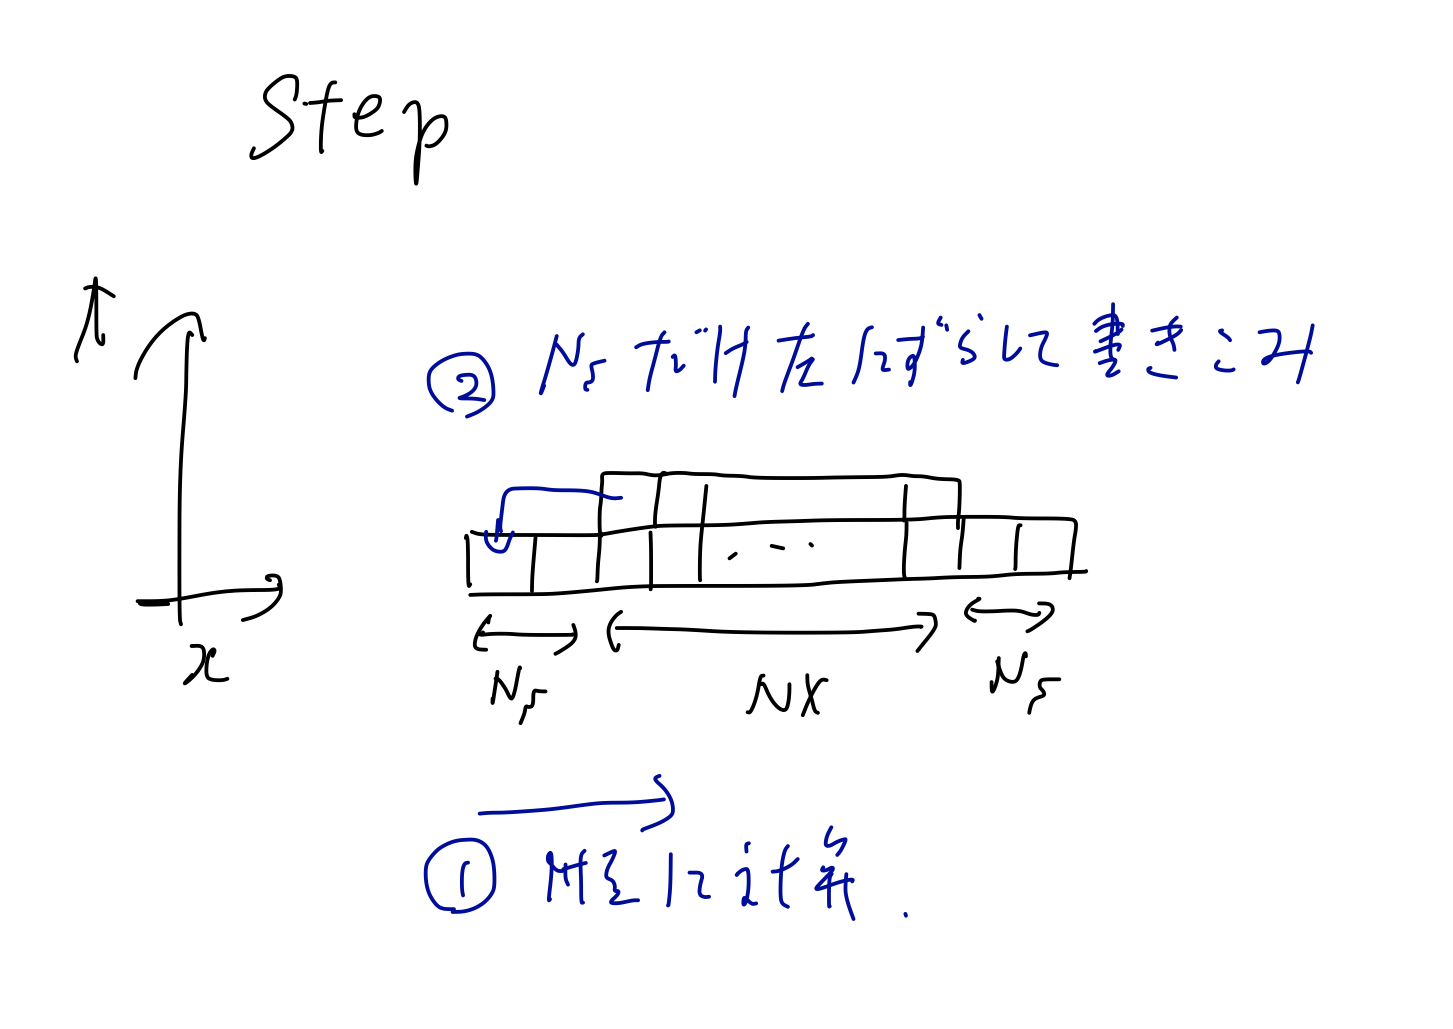 Step
② Ns だけ左にずらして書きこみ
Ns NX Ns
x
① 順に計算.